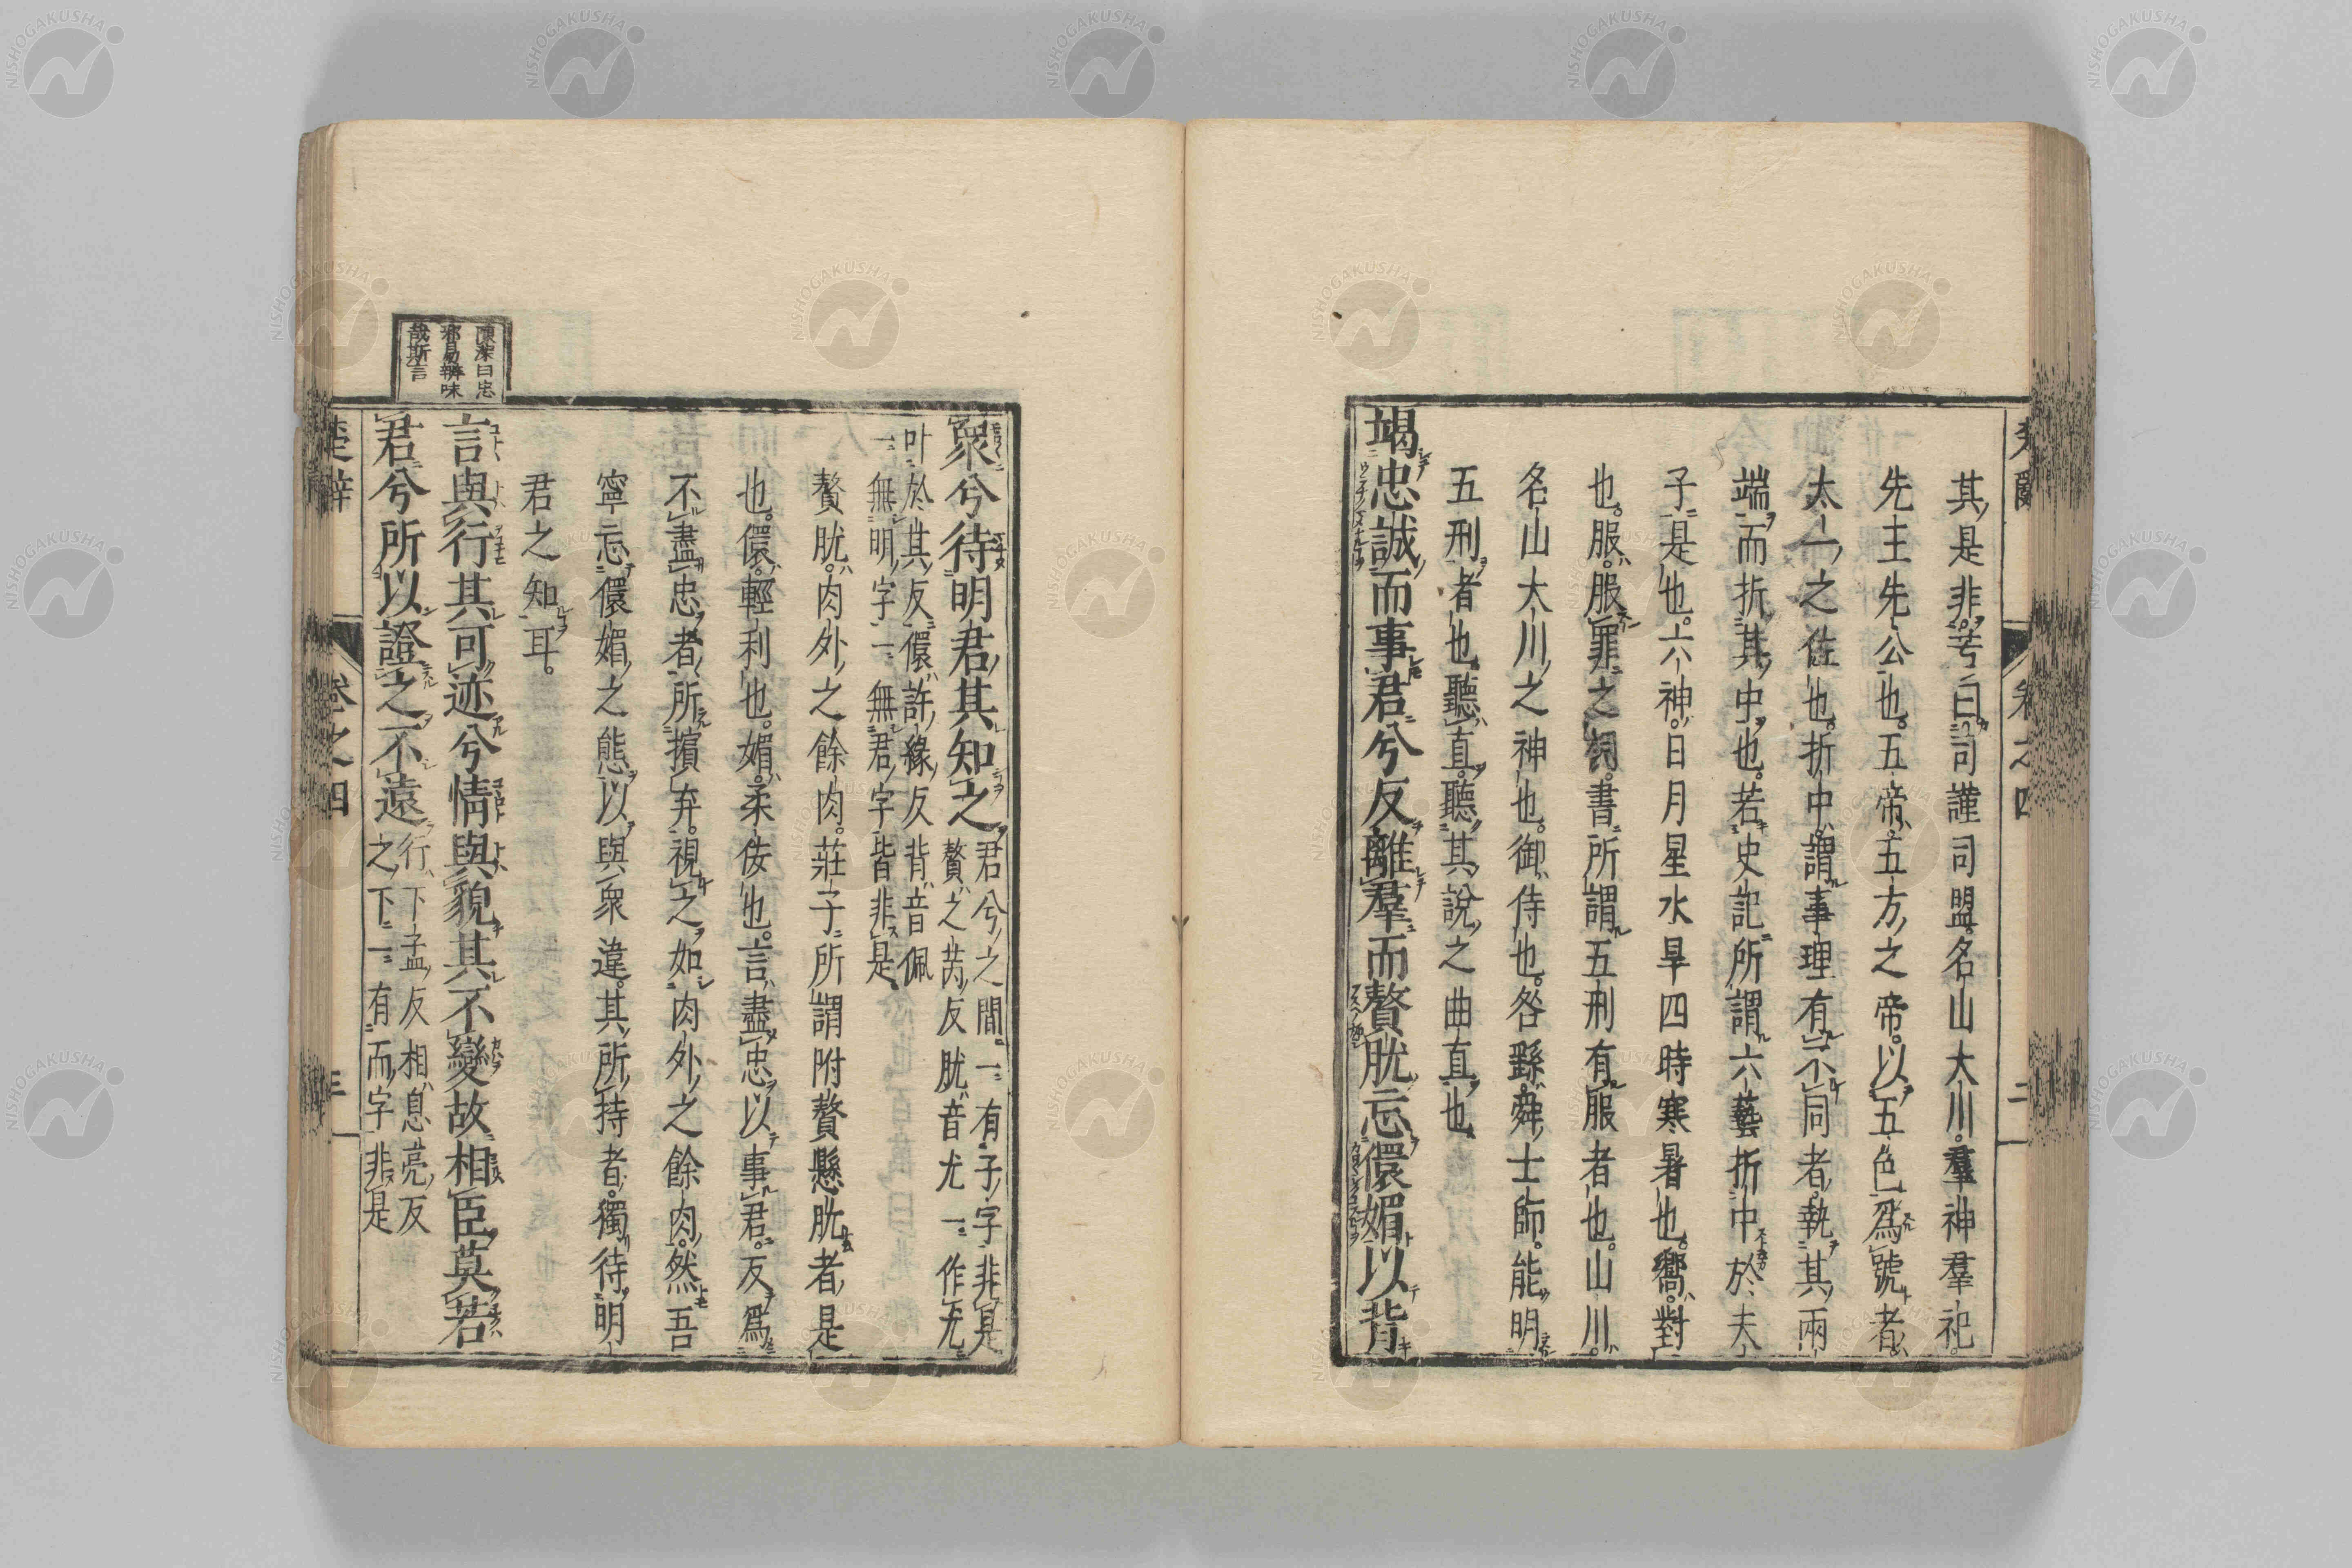 楚辭
卷之四
二
其是非若曰司謹司盟名山大川羣神羣祀
先王先公也。五帝。五方之帝。以五色爲號者。
太一之佐也。折中。謂事理有不同者。執其兩
端而折其中也。若史記所謂六藝折中於夫
子是也。六神。日月星水旱四時寒暑也。嚮。對
也。服。服罪之詞。書所謂五刑有服者也。山川。
名山大川之神也。御。侍也。咎繇。舜士師。能明
五刑者也。聽直。聽其說之曲直也。
竭忠誠而事君兮反離羣而贅肬忘儇媚以背
衆兮待明君其知之
君兮之間一有子字非是
贅之芮反肬音尤一作尤
叶於其反儇許緣反背音佩
一無明字一無君字皆非是
贅肬。肉外之餘肉。莊子所謂附贅懸肬者是
也。儇。輕利也。媚。柔佞也。言盡忠以事君。反爲
不盡忠者所擯弃。視之如肉外之餘肉。然吾
寧忘儇媚之態以與衆違。其所持者。獨待明
君之知耳。
陳深曰忠
邪易辨味
哉斯言
言與行其可迹兮情與貌其不變故相臣莫若
君兮所以證之不遠
行下孟反相息亮反
之下一有而字非是
楚辭
卷之四
三
NISHOGAKUSHA